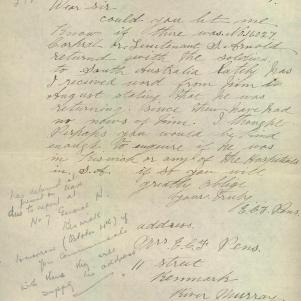 Dear Sir
Could you let me
Know if there was No 16027
Corpel or Lieutenant S. Arnold
returned with the soldiers
to South Australia lately has
I received word from him in
August stating that he was
returning. Since then have had
no news of him. I thought
Perhaps you would be kind
enough to enquire if he was
in Keswick or any of the Hospitals
in S.A. if so you will
greatly oblige
Yours Truly
Pens.
address.
Mrs Pens.
11 street
Renmark
River Murray
due to report at
No 7 General H.
Keswick
tomorrow (October
you communicate
with them they will
supply the address